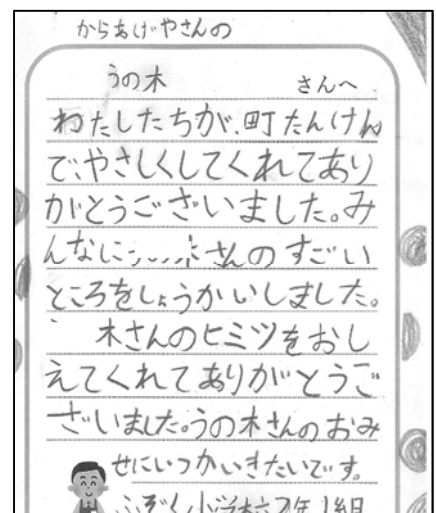 からあげやさんの
うの木 さんへ
わたしたちが、町たんけん
で、やさしくしてくれてあり
がとうございました。み
んなに さんのすごい
ところをしょうかいしました。
木さんのヒミツをおし
えてくれてありがとうご
ざいました。うの木さんのおみ
せにいつかいきたいです。
ふぞく小学校2年1組